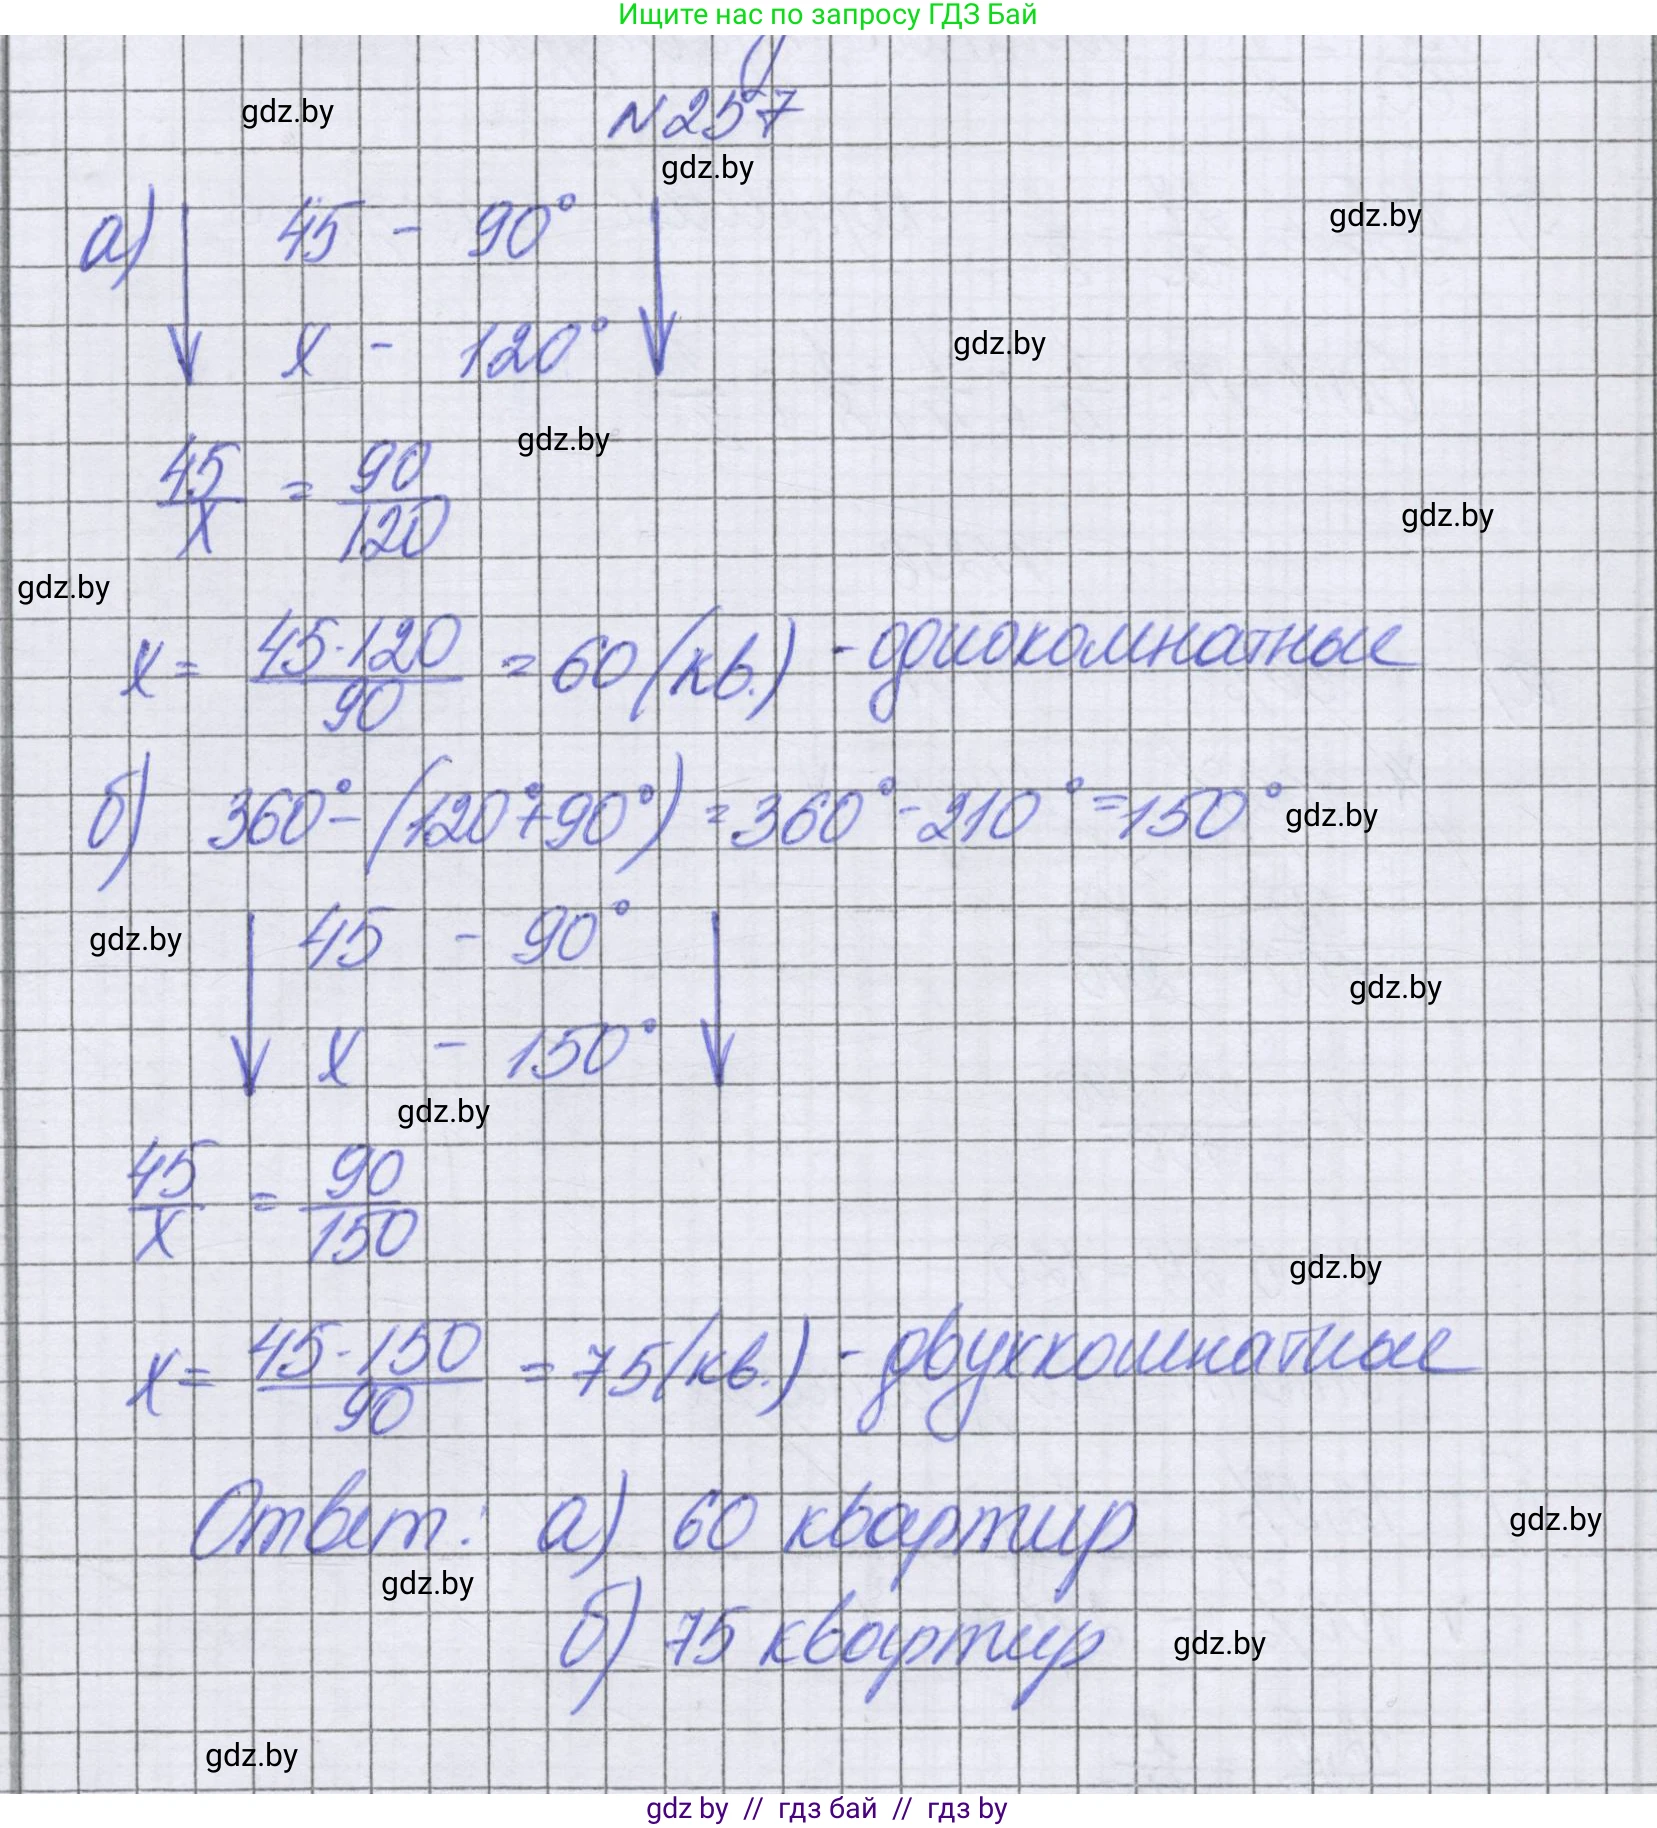 Ищите нас по запросу ГДЗ Бай
gdz.by
N257
gdz.by
а) 45 - 90°
gdz.by
x - 120°
gdz.by
gdz.by
45/x = 90/120
gdz.by
gdz.by
x = 45·120/90 = 60 (кв.) - однокомнатные
б) 360° - (120°+90°) = 360° - 210° = 150°
gdz.by
45 - 90°
gdz.by
gdz.by
x - 150°
gdz.by
45/x = 90/150
gdz.by
x = 45·150/90 = 75 (кв.) - двухкомнатные
Ответ: а) 60 квартир
gdz.by
gdz.by
б) 75 квартир
gdz.by
gdz.by
gdz by // гдз бай // гдз by